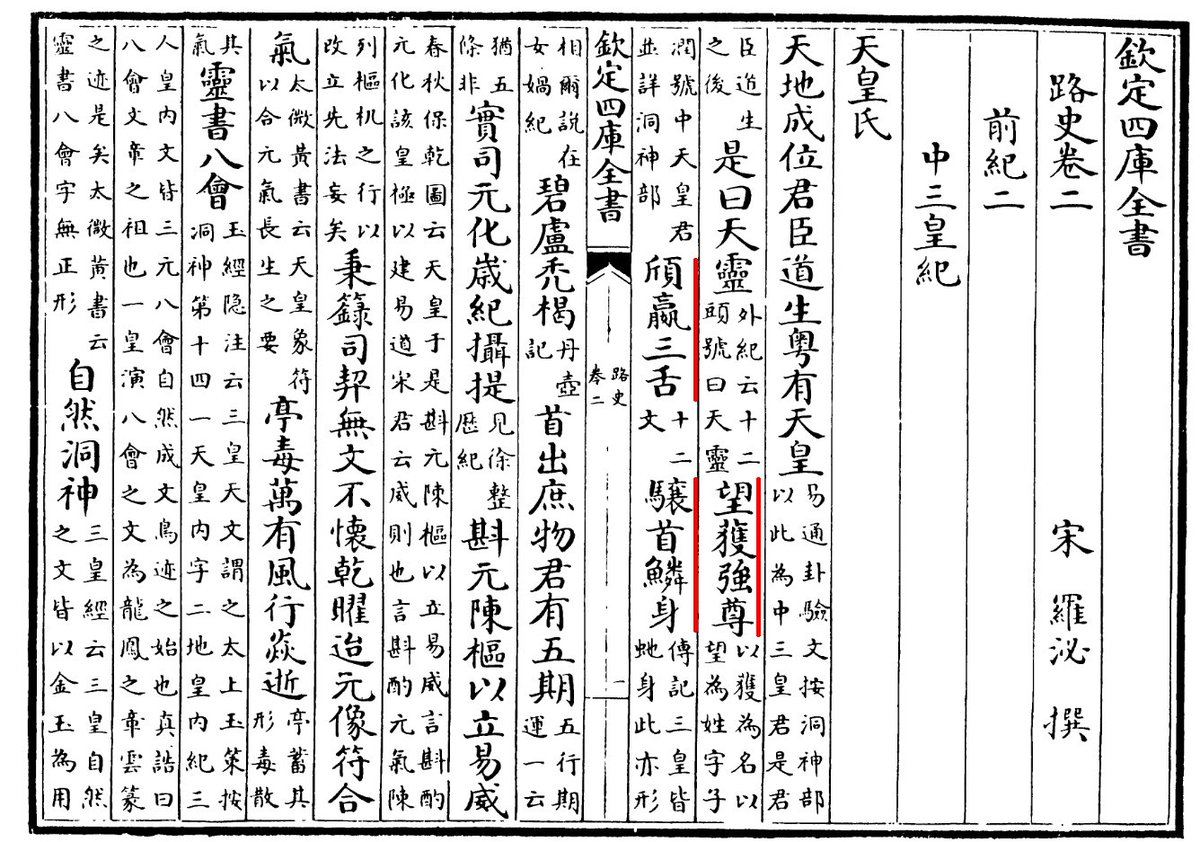 欽定四庫全書
路史卷二 宋 羅泌 撰
前紀二
中三皇紀
天皇氏
天地成位君臣道生粤有天皇易通卦驗文按洞神部以此為中三皇君是君
臣道生之後是曰天靈外紀云十二頭號曰天靈望獲強尊以獲為名以望為姓字子
潤號中天皇君並詳洞神部頎贏三舌十二文驤首鱗身傳記三皇皆虵身此亦形
欽定四庫全書 路史卷二 二
相爾説在女媧紀碧盧禿楬丹壺記首出庶物君有五期五行期運一云
猶五條非實司元化嵗紀攝提見徐整歷紀斟元陳樞以立易威
春秋保乾圖云天皇于是斟元陳樞以立易威言斟酌元化該皇極以建易道宋君云威則也言斟酌元氣陳
列樞机之行以改立先法妄矣秉籙司契無文不懷乾曜迨元像符合
氣太微黄書云天皇象符以合元氣長生之要亭毒萬有風行焱逝亭蓄其形毒散
其氣靈書八會玉經隐注云三皇天文謂之太上玉策按洞神第十四一天皇内字二地皇内紀三
人皇内文皆三元八會自然成文鳥迹之始也真誥曰八會文章之祖也一皇演八會之文為龍鳳之章雲篆
之迹是矣太微黄書云靈書八會字無正形自然洞神三皇經云三皇自然之文皆以金玉為用